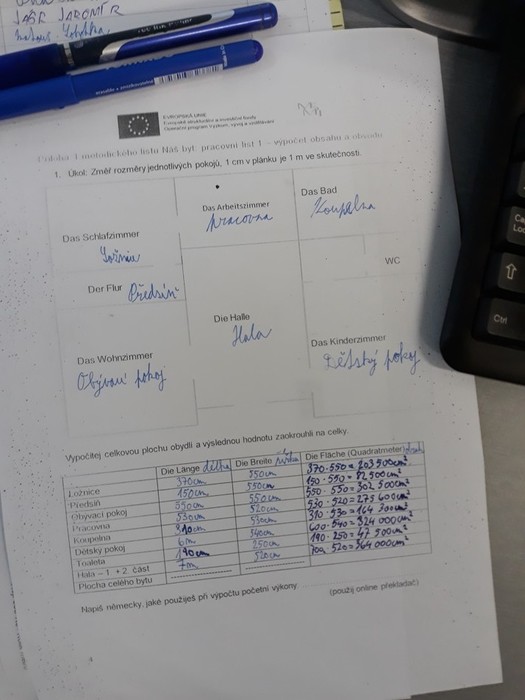 JAROMÍR
EVROPSKÁ UNIE
Evropské strukturální a investiční fondy
Operační program Výzkum, vývoj a vzdělávání
Příloha 1 metodického listu Náš byt: pracovní list 1 – výpočet obsahu a obvodu
1. Úkol: Změř rozměry jednotlivých pokojů, 1 cm v plánku je 1 m ve skutečnosti.
Das Arbeitszimmer
pracovna
Das Bad
Koupelna
Das Schlafzimmer
ložnice
WC
Der Flur Předsíň
Die Halle
Hala
Das Wohnzimmer
Obývací pokoj
Das Kinderzimmer
Dětský pokoj
Vypočítej celkovou plochu obydlí a výslednou hodnotu zaokrouhli na celky.
Die Länge délka Die Breite šířka Die Fläche (Quadratmeter)
Ložnice 370cm 550cm 370·550=203500cm²
Předsíň 150cm 550cm 150·550=82500cm²
Obývací pokoj 550cm 550cm 550·550=302500cm²
Pracovna 530cm 520cm 530·520=275600cm²
Koupelna 310cm 530cm 310·530=164300cm²
Dětský pokoj 6m 540cm 600·540=324000cm²
Toaleta 190cm 250cm 190·250=47500cm²
Hala – 1. + 2. část 7m 520cm 700·520=364000cm²
Plocha celého bytu
Napiš německy, jaké použiješ při výpočtu početní výkony. (použij online překladač)
Ctrl